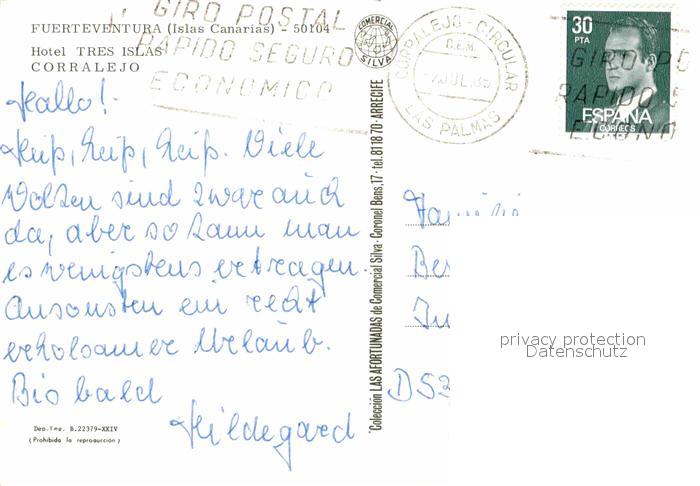 FUERTEVENTURA (Islas Canarias) - 50104
Hotel TRES ISLAS
CORRALEJO
GIRO POSTAL
RAPIDO SEGURO
ECONOMICO
COMERCIAL
SILVA
CORRALEJO - CIRCULAR
LAS PALMAS
30
PTA
ESPAÑA
CORREOS
GIRO PO
RAPIDO S
ECONO
Hallo!
Heiß, heiß, heiß. Viele
Wolken sind zwar auch
da, aber so kann man
es wenigstens ertragen.
Ansonsten ein recht
erholsamer Urlaub.
Bis bald
Hildegard
Colección LAS AFORTUNADAS de Comercial Silva - Coronel Bens, 17 - tel. 81 18 70 - ARRECIFE
privacy protection
Datenschutz
Dep. Leg. B. 22379-XXIV
(Prohibida la reproducción)